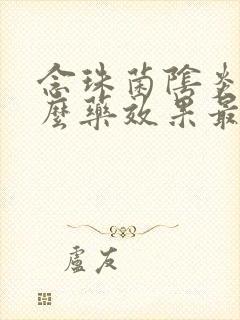 念珠菌陰炎
麼藥效果最
盧友